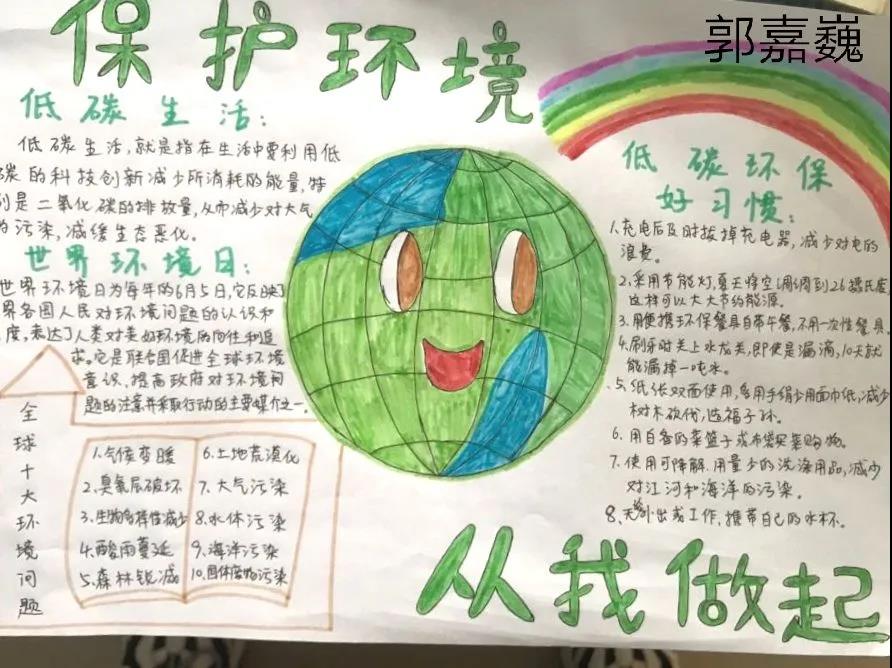 保护环境
郭嘉巍
低碳生活：
低碳生活，就是指在生活中要利用低
碳的科技创新减少所消耗的能量，特
别是二氧化碳的排放量，从而减少对大气
的污染，减缓生态恶化。
世界环境日：
世界环境日为每年的6月5日，它反映了
界各国人民对环境问题的认识和
度，表达了人类对美好环境的向往和追
求。它是联合国促进全球环境
意识、提高政府对环境问
题的注意并采取行动的主要媒介之一。
全球十大环境问题
1.气候变暖
2.臭氧层破坏
3.生物多样性减少
4.酸雨蔓延
5.森林锐减
6.土地荒漠化
7.大气污染
8.水体污染
9.海洋污染
10.固体废物污染
低碳环保
好习惯：
1.充电后及时拔掉充电器，减少对电的
浪费。
2.采用节能灯，夏天将空调调到26摄氏度
这样可以大大节约能源。
3.用便携环保餐具自带午餐，不用一次性餐具
4.刷牙时关上水龙头，即使是漏滴，10天就
能漏掉一吨水。
5.纸张双面使用，多用手绢少用面巾纸，减少
树木砍伐，造福子孙。
6.用自备的菜篮子或布袋买菜购物。
7.使用可降解.用量少的洗涤用品，减少
对江河和海洋的污染。
8.外出或工作，携带自己的水杯。
从我做起